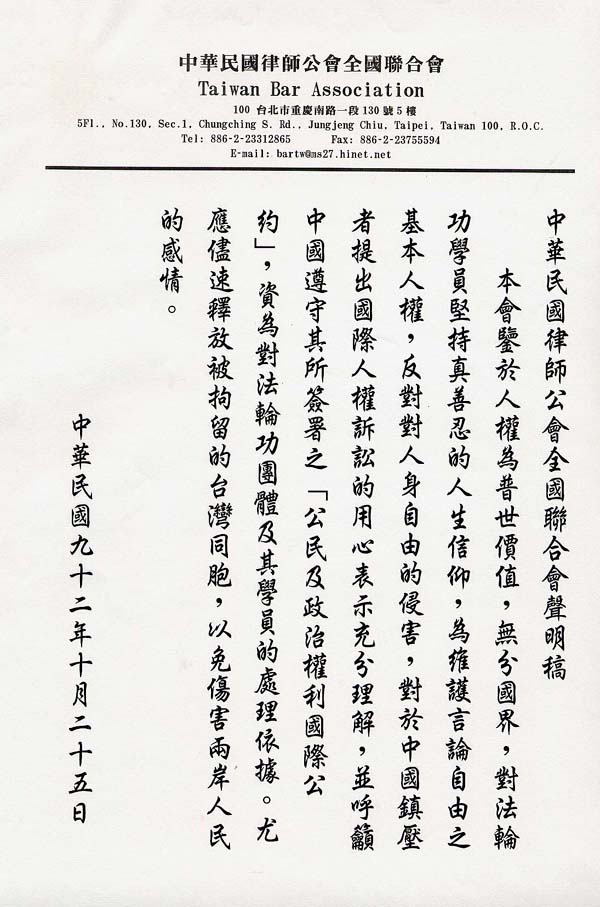 中華民國律師公會全國聯合會
Taiwan Bar Association
100 台北市重慶南路一段130號5樓
5Fl., No.130, Sec.1, Chungching S. Rd., Jungjeng Chiu, Taipei, Taiwan 100, R.O.C.
Tel: 886-2-23312865 Fax: 886-2-23755594
E-mail: bartw@ms27.hinet.net
中華民國律師公會全國聯合會聲明稿
本會鑒於人權為普世價值，無分國界，對法輪
功學員堅持真善忍的人生信仰，為維護言論自由之
基本人權，反對對人身自由的侵害，對於中國鎮壓
者提出國際人權訴訟的用心表示充分理解，並呼籲
中國遵守其所簽署之「公民及政治權利國際公
約」，資為對法輪功團體及其學員的處理依據。尤
應儘速釋放被拘留的台灣同胞，以免傷害兩岸人民
的感情。
中華民國九十二年十月二十五日